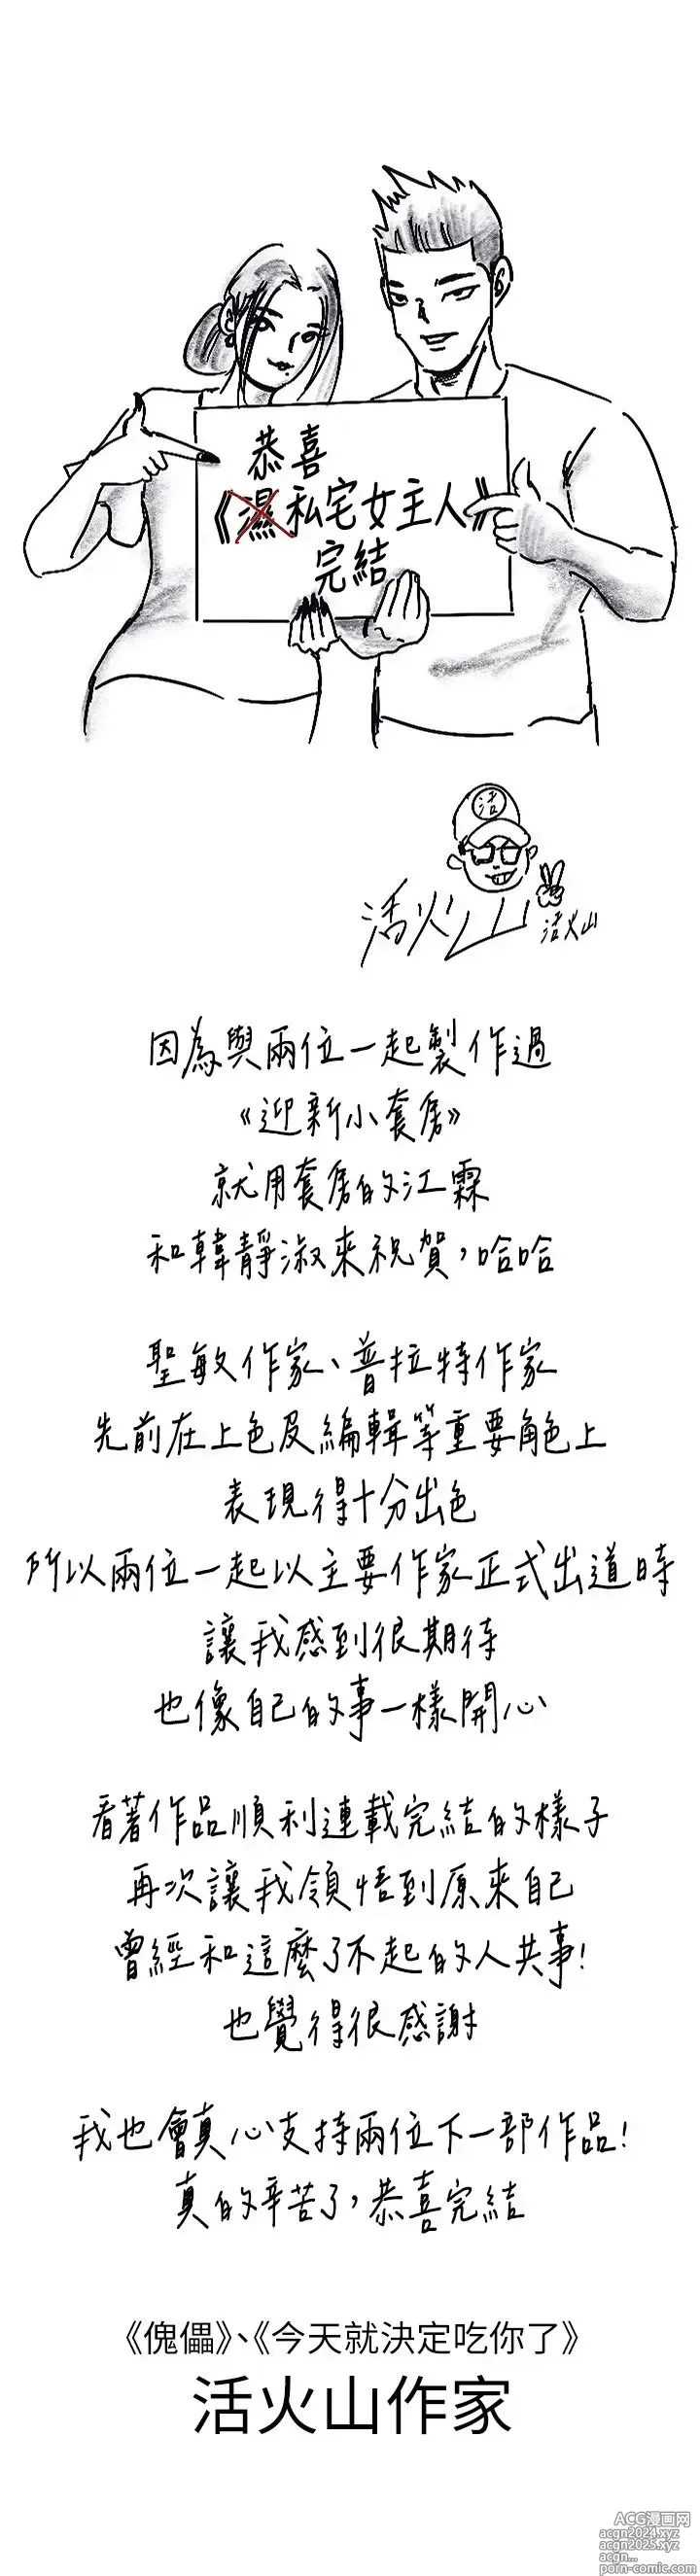 恭喜
《濕私宅女主人》
完結
活
活火山
活火山
因為與兩位一起製作過
《迎新小套房》
就用套房的江霖
和韓靜淑來祝賀，哈哈
聖敏作家、普拉特作家
先前在上色及編輯等重要角色上
表現得十分出色
所以兩位一起以主要作家正式出道時
讓我感到很期待
也像自己的事一樣開心
看著作品順利連載完結的樣子
再次讓我領悟到原來自己
曾經和這麼了不起的人共事！
也覺得很感謝
我也會真心支持兩位下一部作品！
真的辛苦了，恭喜完結
《傀儡》、《今天就決定吃你了》
活火山作家
ACG漫画网
acgn2024.xyz
acgn2025.xyz
acgn...
porn-comic.com